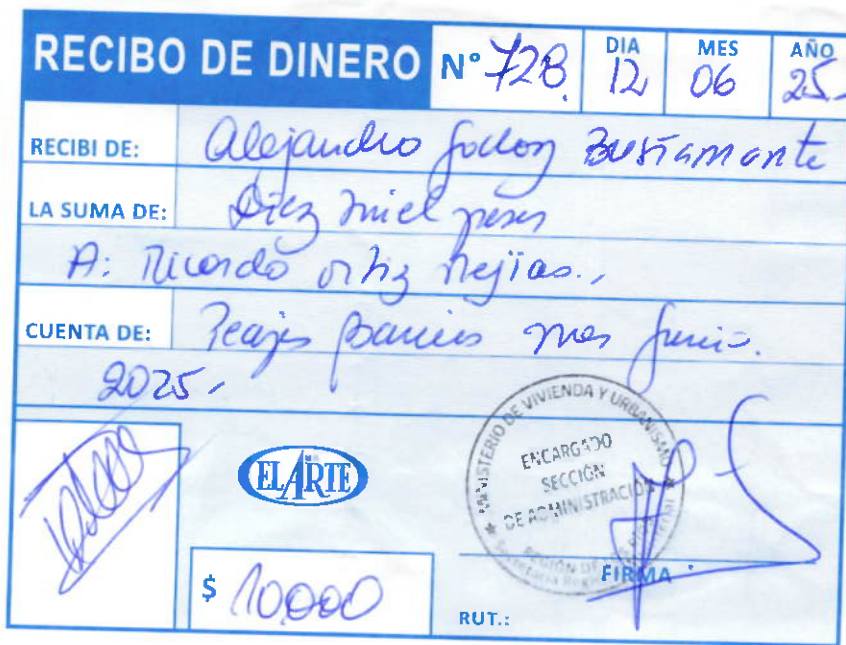 RECIBO DE DINERO N° 728. DIA 12 MES 06 AÑO 25.-
RECIBI DE: Alejandro Godoy Bustamante
LA SUMA DE: Diez miel pesos
A: Ricardo Ortiz Mejias.,
CUENTA DE: Peajes Barrios mes Junio.
2025,
MINISTERIO DE VIVIENDA Y URBANISMO
ENCARGADO
SECCIÓN
DE ADMINISTRACIÓN
REGIÓN DE
EL ARTE
$ 10.000
FIRMA
RUT.: